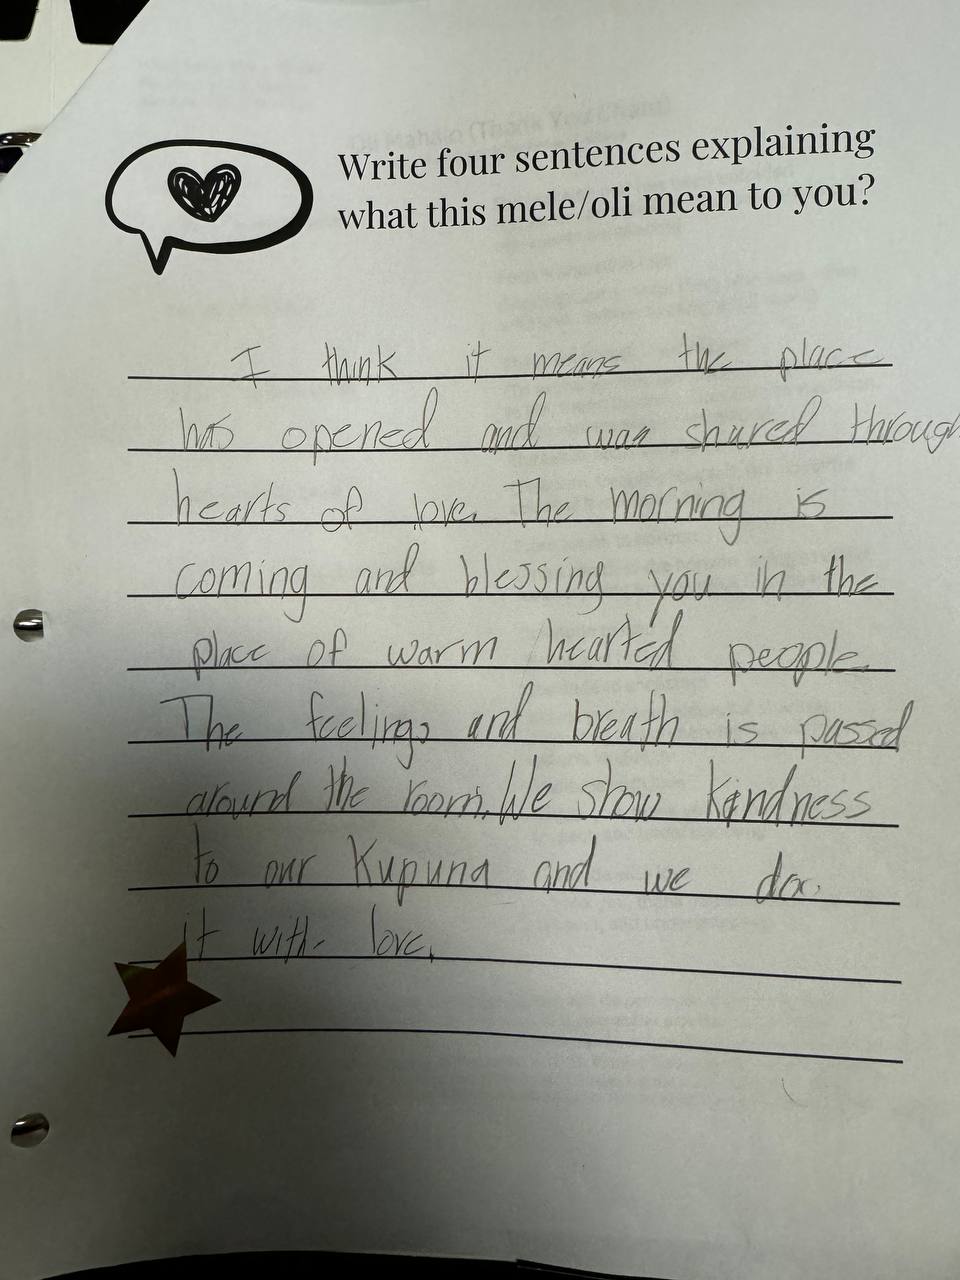 Write four sentences explaining
what this mele/oli mean to you?
I think it means the place
has opened and was shared through
hearts of love. The morning is
coming and blessing you in the
place of warm hearted people.
The feelings and breath is passed
around the room. We show kindness
to our Kupuna and we do
it with love.